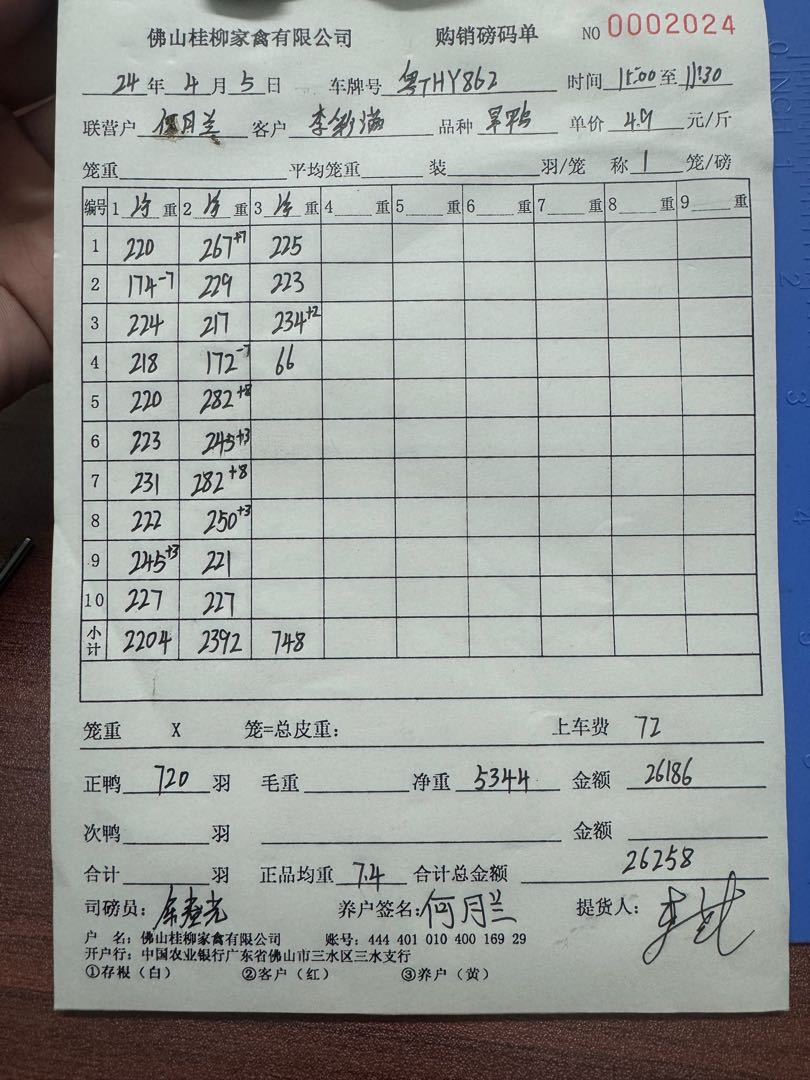 佛山桂柳家禽有限公司 购销磅码单 NO 0002024
24年4月5日 车牌号 粤THY862 时间 15:00至11:30
联营户 何月兰 客户 李彩满 品种 旱鸭 单价 4.9 元/斤
笼重 平均笼重 装 羽/笼 称 1 笼/磅
编号 1 净 重 2 净 重 3 净 重 4 重 5 重 6 重 7 重 8 重 9 重
1 220 267+7 225
2 174-7 229 223
3 224 217 234+2
4 218 172-7 66
5 220 282+8
6 223 245+3
7 231 282+8
8 222 250+3
9 245+3 221
10 227 227
小计 2204 2392 748
笼重 X 笼=总皮重: 上车费 72
正鸭 720 羽 毛重 净重 5344 金额 26186
次鸭 羽 金额
合计 羽 正品均重 7.4 合计总金额 26258
司磅员: 养户签名: 何月兰 提货人:
户 名: 佛山桂柳家禽有限公司 账号: 444 401 010 400 169 29
开户行: 中国农业银行广东省佛山市三水区三水支行
①存根(白) ②客户(红) ③养户(黄)